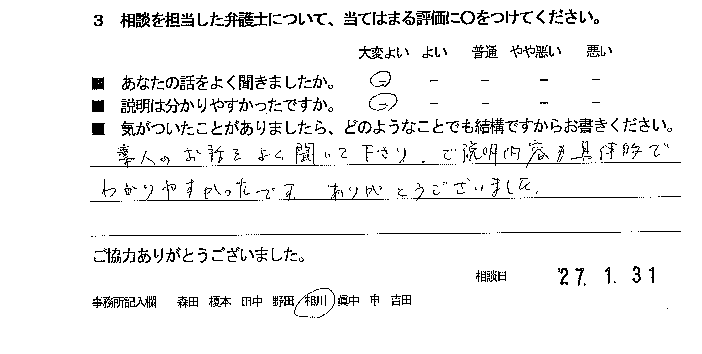 3 相談を担当した弁護士について、当てはまる評価に○をつけてください。
大変よい よい 普通 やや悪い 悪い
■ あなたの話をよく聞きましたか。 - - - - -
■ 説明は分かりやすかったですか。 - - - - -
■ 気がついたことがありましたら、どのようなことでも結構ですからお書きください。
素人のお話をよく聞いて下さり、ご説明内容も具体的で
わかりやすかったです。ありがとうございました。
ご協力ありがとうございました。
相談日 '27. 1. 31
事務所記入欄 森田 榎本 田中 野田 相川 眞中 申 吉田